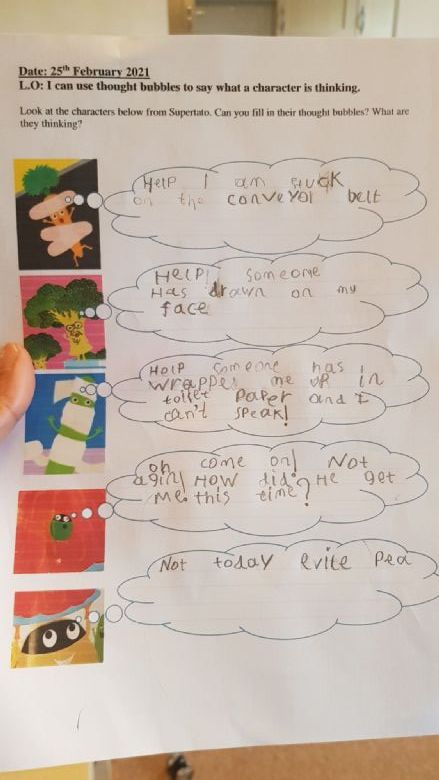 Date: 25th February 2021
L.O: I can use thought bubbles to say what a character is thinking.
Look at the characters below from Supertato. Can you fill in their thought bubbles? What are
they thinking?
Help I am stuck
on the conveyol belt
Help! Someone
Has drawn on my
face
Help Someone has
wrapped me up in
toilet paper and I
can't speak!
oh come on! Not
agin! How did he get
me this time?
Not today evile pea